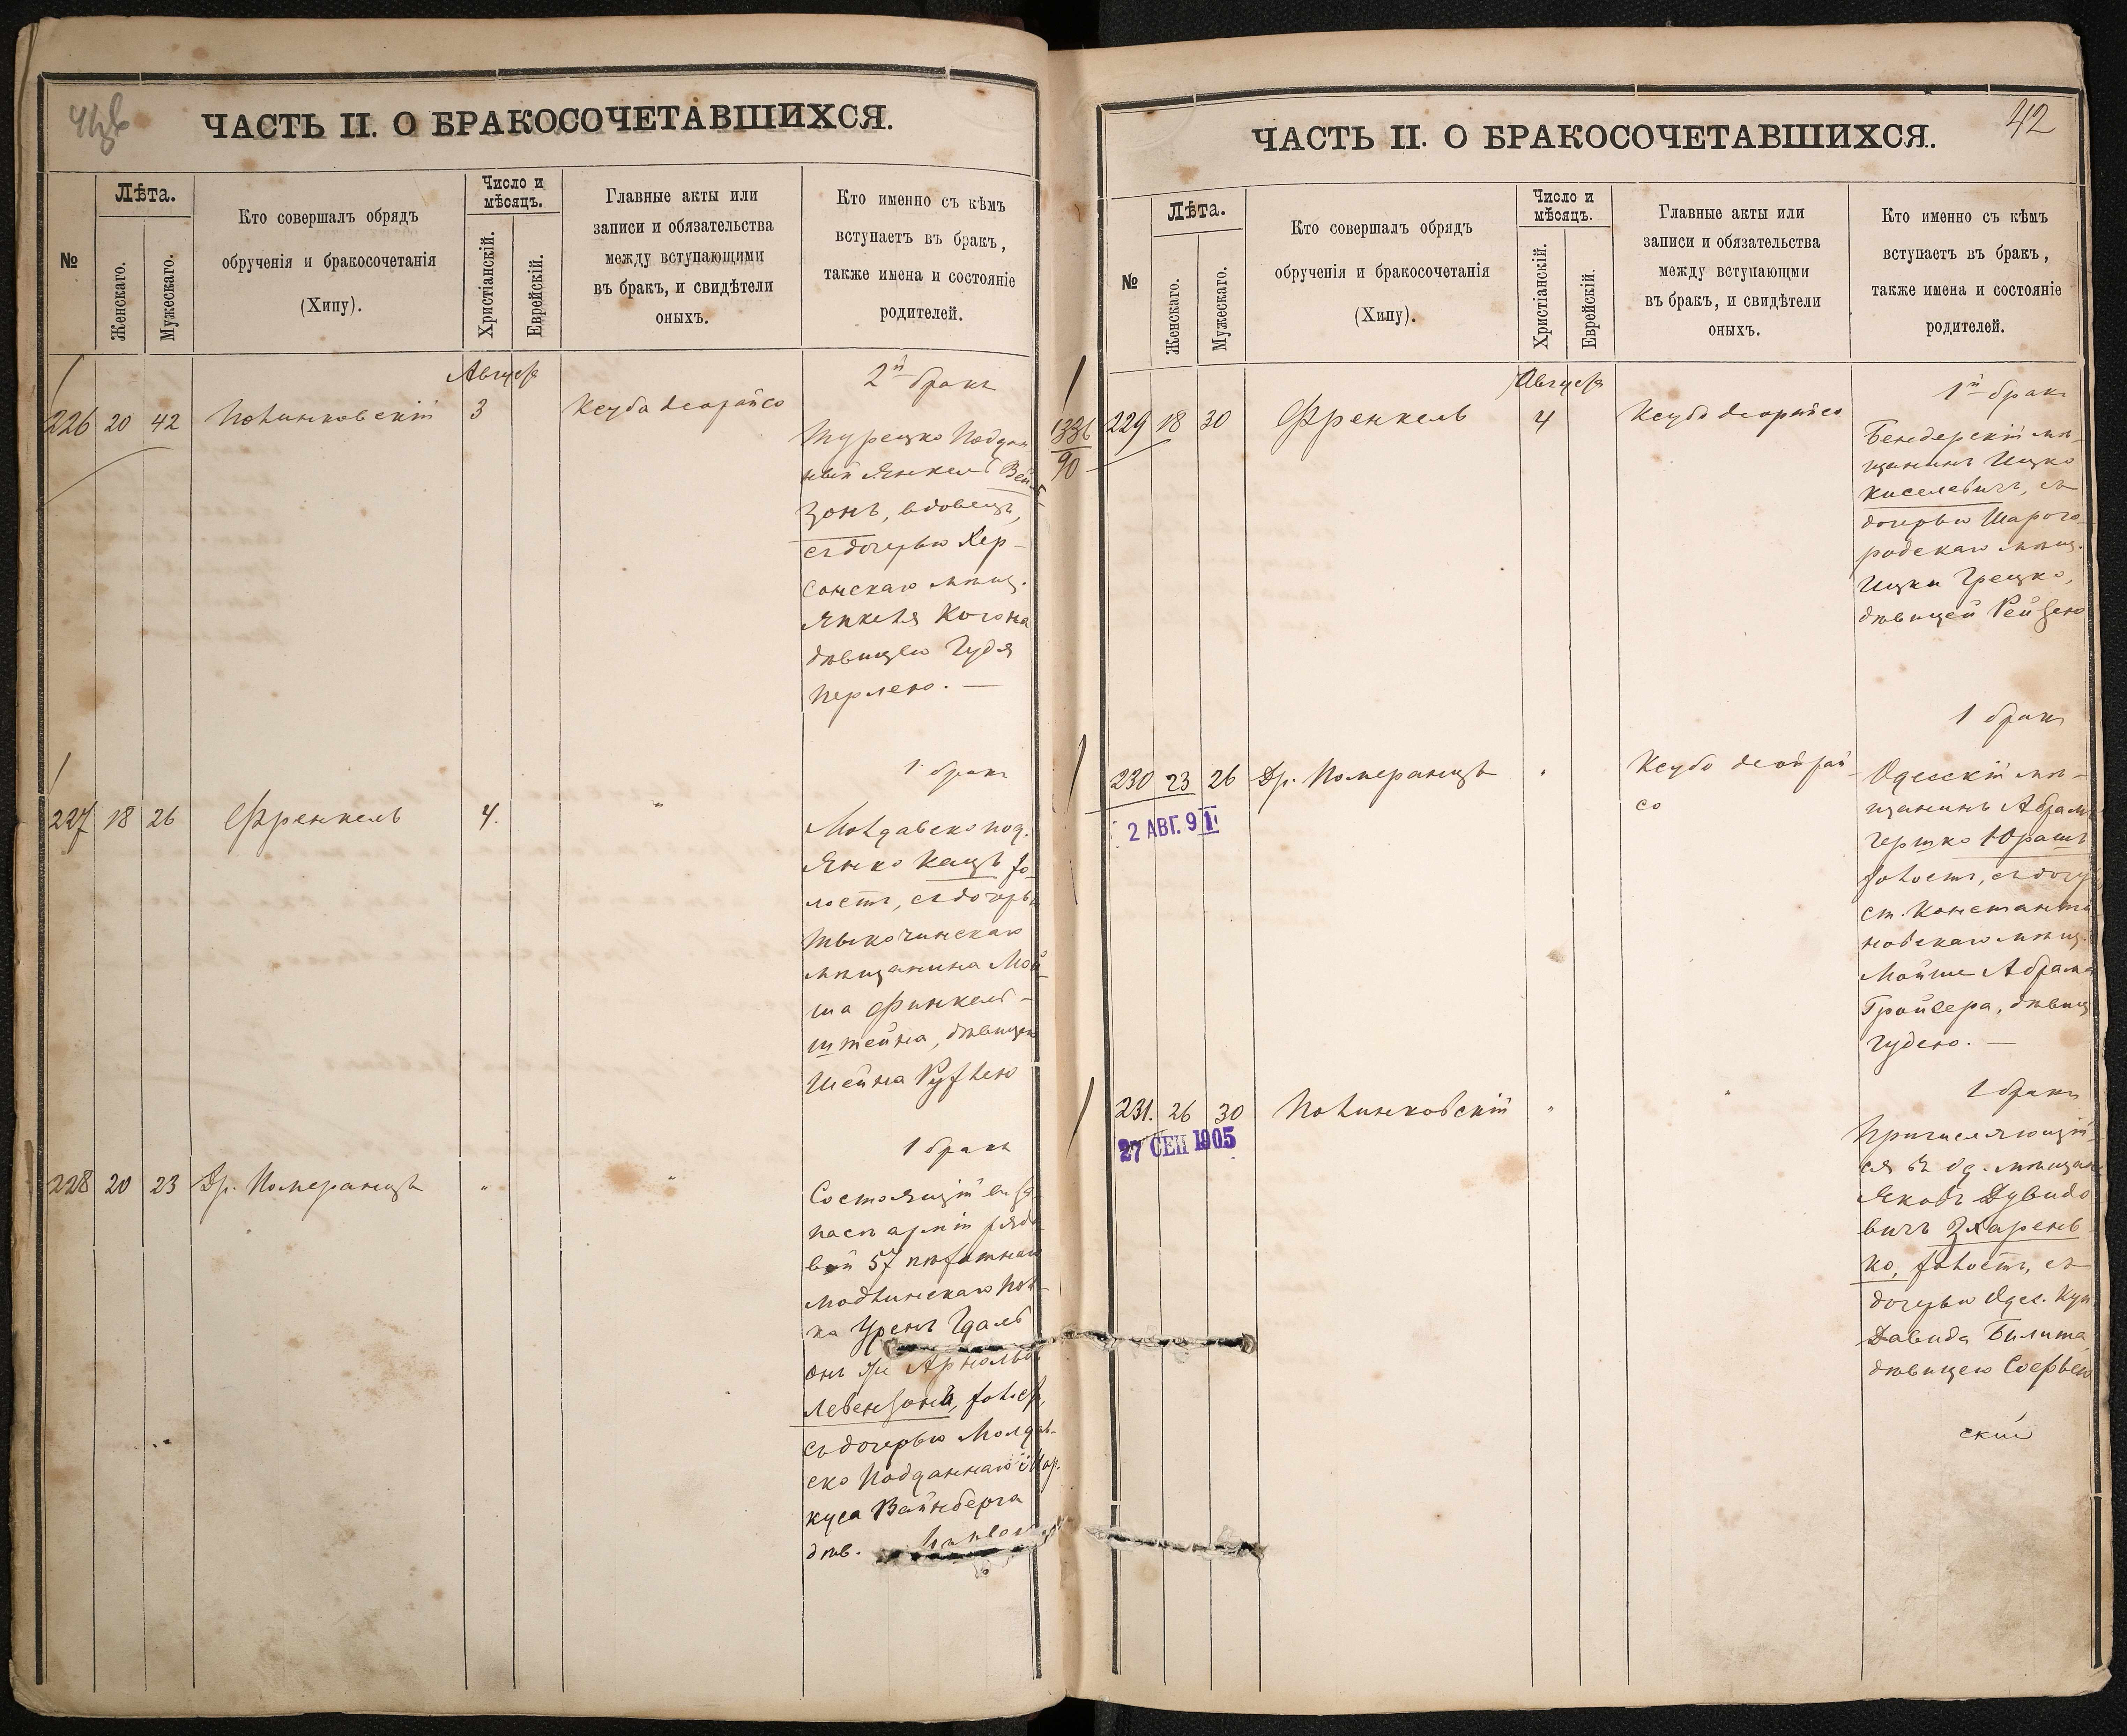 ЧАСТЬ II. О БРАКОСОЧЕТАВШИХСЯ.
№
Лѣта.
Женскаго.
Мужескаго.
Кто совершалъ обрядъ
обрученія и бракосочетанія
(Хипу).
Число и
мѣсяцъ.
Христіанскій.
Еврейскій.
Главные акты или
записи и обязательства
между вступающими
въ бракъ, и свидѣтели
оныхъ.
Кто именно съ кѣмъ
вступаетъ въ бракъ,
также имена и состояніе
родителей.
Августа
2й бракъ
226 20 42 Полинковскій 3 Ксуба деорайсо
Турецко Поддан
ный Янкель Вейн
зонъ, вдовецъ,
съ дочерью Хер-
сонскаго мѣщ.
Янкеля Когона
дѣвицею Гудя
Перлею. —
1 бракъ
227 18 26 Френкель 4. "
Молдавско под.
Янко Кацъ хо
лостъ, съ дочерью
Тыкочинскаго
мѣщанина Мой
ша Финкель-
штейна, дѣвицею
Шейна Рухлею
1 бракъ
228 20 23 Др. Померанцъ " "
Состоящій въ за
пасѣ арміи рядо
вой 57 пѣхотнаго
Модлинскаго Пол-
ка Уренъ Гдаль
онъ же Арнольдъ
Левензонъ, холост,
съ дочерью Молдав-
ско Подданнаго Мар.
куса Вайнберга
дѣв.
ЧАСТЬ II. О БРАКОСОЧЕТАВШИХСЯ.
42
№
Лѣта.
Женскаго.
Мужескаго.
Кто совершалъ обрядъ
обрученія и бракосочетанія
(Хипу).
Число и
мѣсяцъ.
Христіанскій.
Еврейскій.
Главные акты или
записи и обязательства
между вступающми
въ бракъ, и свидѣтели
оныхъ.
Кто именно съ кѣмъ
вступаетъ въ бракъ,
также имена и состояніе
родителей.
Августа
1й бракъ
1336
90
229 18 30 Френкель 4 Ксубо деорайсо
Бендерскій мѣ-
щанинъ Ицко
Киселевичъ, съ
дочерью Шарого-
родскаго мѣщ.
Ицки Грецко,
дѣвицей Рейзею
1 бракъ
230 23 26 Др. Померанцъ " Ксубо деойрай
со
2 АВГ. 91
Одесскій мѣ-
щанинъ Абрамъ
Гершко Юрашъ
холостъ, съ дочер
ст. Константи
новскаго мѣщ.
Мойше Абрама
Гройсера, дѣвиц
Гудею. —
1 бракъ
231. 26 30 Полинковскій " "
27 СЕН 1905
Причисляющій-
ся въ од. мѣщане
Яковъ Дувидо
вичъ Жхарень
ко, холостъ, съ
дочерью Одес. куп.
Давида Билита
дѣвицею Софьею
скій